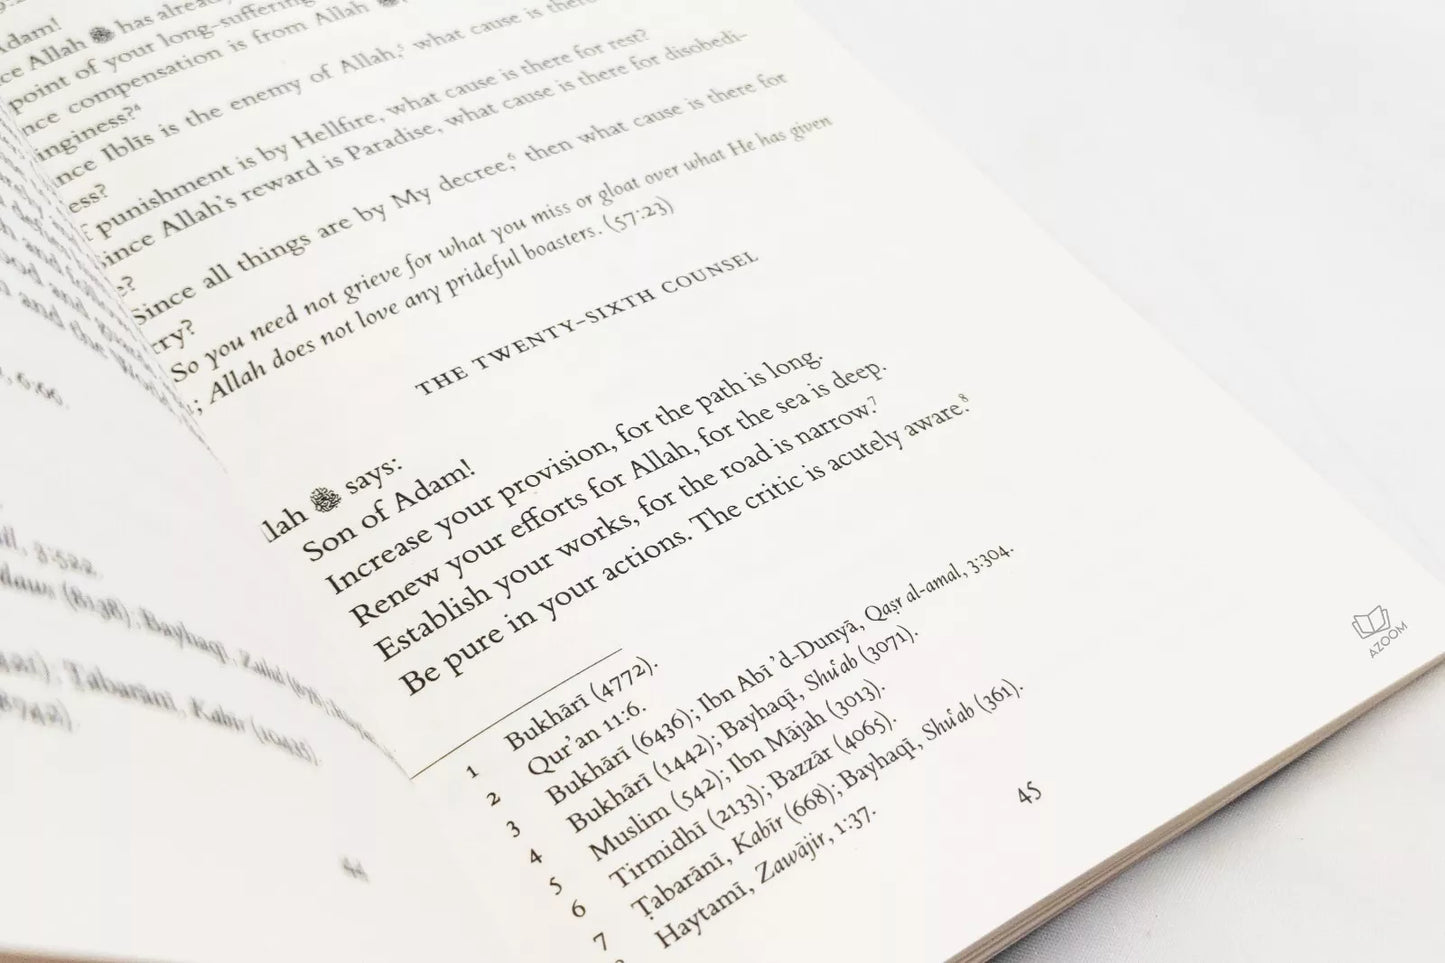 Adam!
Allah ﷻ has already
point of your long-suffering
compensation is from Allah
⁴
Iblis is the enemy of Allah,⁵ what cause is there
punishment is by Hellfire, what cause is there for rest?
Allah's reward is Paradise, what cause is there for disobedi-
Since all things are by My decree,⁶ then what cause is there for
So you need not grieve for what you miss or gloat over what He has given
; Allah does not love any prideful boasters. (57:23)
THE TWENTY-SIXTH COUNSEL
llah ﷻ says:
Son of Adam!
Increase your provision, for the path is long.
Renew your efforts for Allah, for the sea is deep.
Establish your works, for the road is narrow.⁷
Be pure in your actions. The critic is acutely aware.⁸
1 Bukhārī (4772).
2 Qur'an 11:6.
3 Bukhārī (6436); Ibn Abī 'd-Dunyā, Qaṣr al-amal, 3:304.
4 Bukhārī (1442); Bayhaqī, Shuʿab (3071).
5 Muslim (542); Ibn Mājah (3013).
6 Tirmidhī (2133); Bazzār (4065).
7 Ṭabarānī, Kabīr (668); Bayhaqī, Shuʿab (361).
Haytamī, Zawājir, 1:37.
45
44
AZOOM